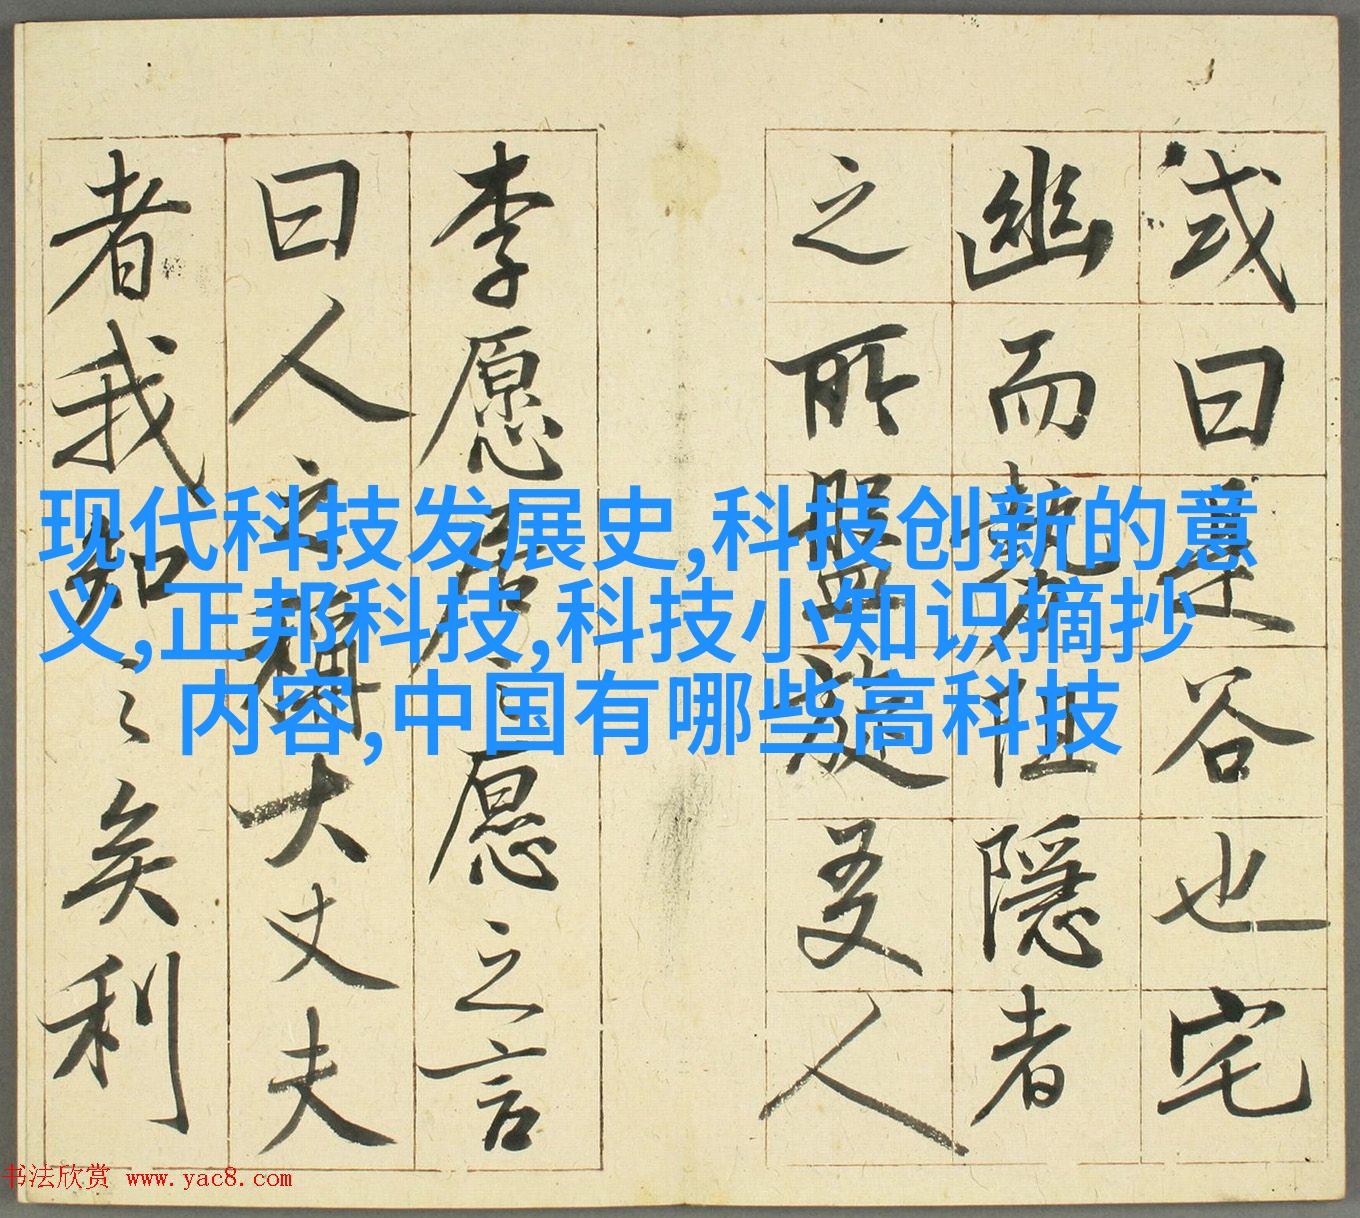 或曰是谷也宅
幽而勢阻隱者
之所盤旋友人
李愿居之愿之言
曰人之稱大丈夫
者我知之矣利
现代科技发展史,科技创新的意
义,正邦科技,科技小知识摘抄
内容,中国有哪些高科技
书法欣赏 www.yac8.com